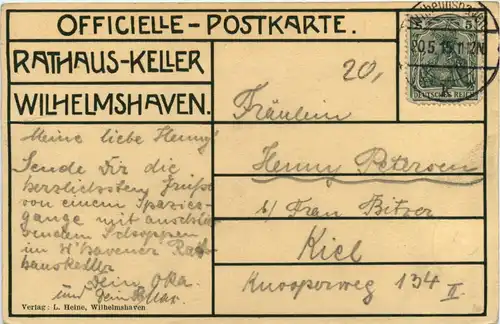 OFFICIELLE-POSTKARTE.
RATHAUS-KELLER
WILHELMSHAVEN.
Wilhelmshaven
20.5.15.11-12N
5
DEUTSCHES REICH
20,
Meine liebe Henny!
Sende Dir die
herzlichsten Grüße
von einem Spazier-
gange mit anschlie
sendem
im W'havener Rat
hauskeller
Dein
und Dein
Fräulein
Henny Petersen
b/ Frau Bitzer
Kiel
Knooperweg 134 II
Verlag: L. Heine, Wilhelmshaven